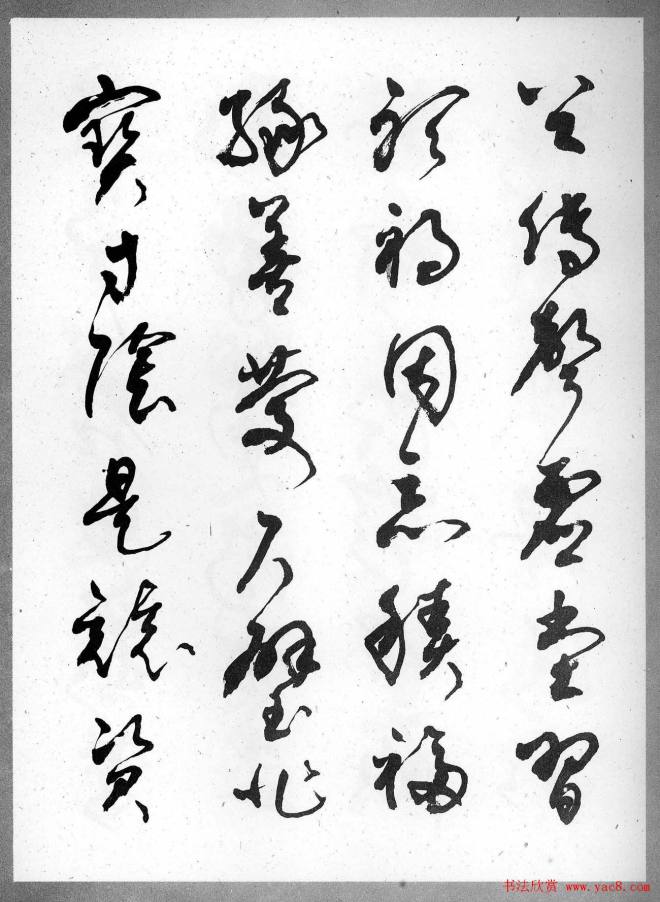 谷傳聲虛堂習
聽禍因惡積福
緣善慶尺璧非
寶寸陰是競資
书法欣赏 www.yac8.com